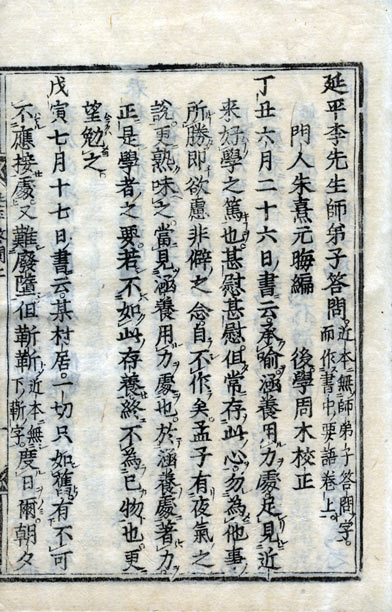 延平李先生師弟子答問近本無師弟子答問字。而作書中要語卷上。
門人朱熹元晦編　後學周木校正
丁丑六月二十六日書云。承喻涵養用力處足見近
来好學之篤也。甚慰甚慰。但常存此心。勿為他事
所勝即欲慮非僻之念自不作矣。孟子有夜氣之
說。更熟味之。當見涵養用力處也。於涵養處著力。
正是學者之要。若不如此存養。終不為已物也。更
望勉之
戊寅七月十七日書云。某村居。一切只如舊。有不可
不應接處。又難廢墮。但靳靳近本無下靳字。度日爾。朝夕